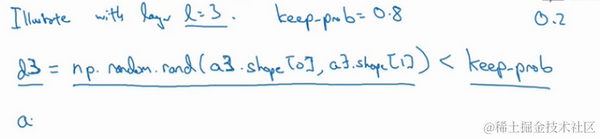 Illustrate with layer l=3. keep-prob=0.8 0.2
d3 = np.random.rand(a3.shape[0], a3.shape[1]) < keep-prob
a
@稀土掘金技术社区